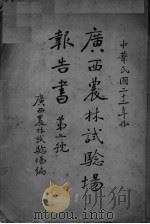 中華民國二十二年份
廣西農林試驗場
報告書 第二號
廣西農林試驗場編